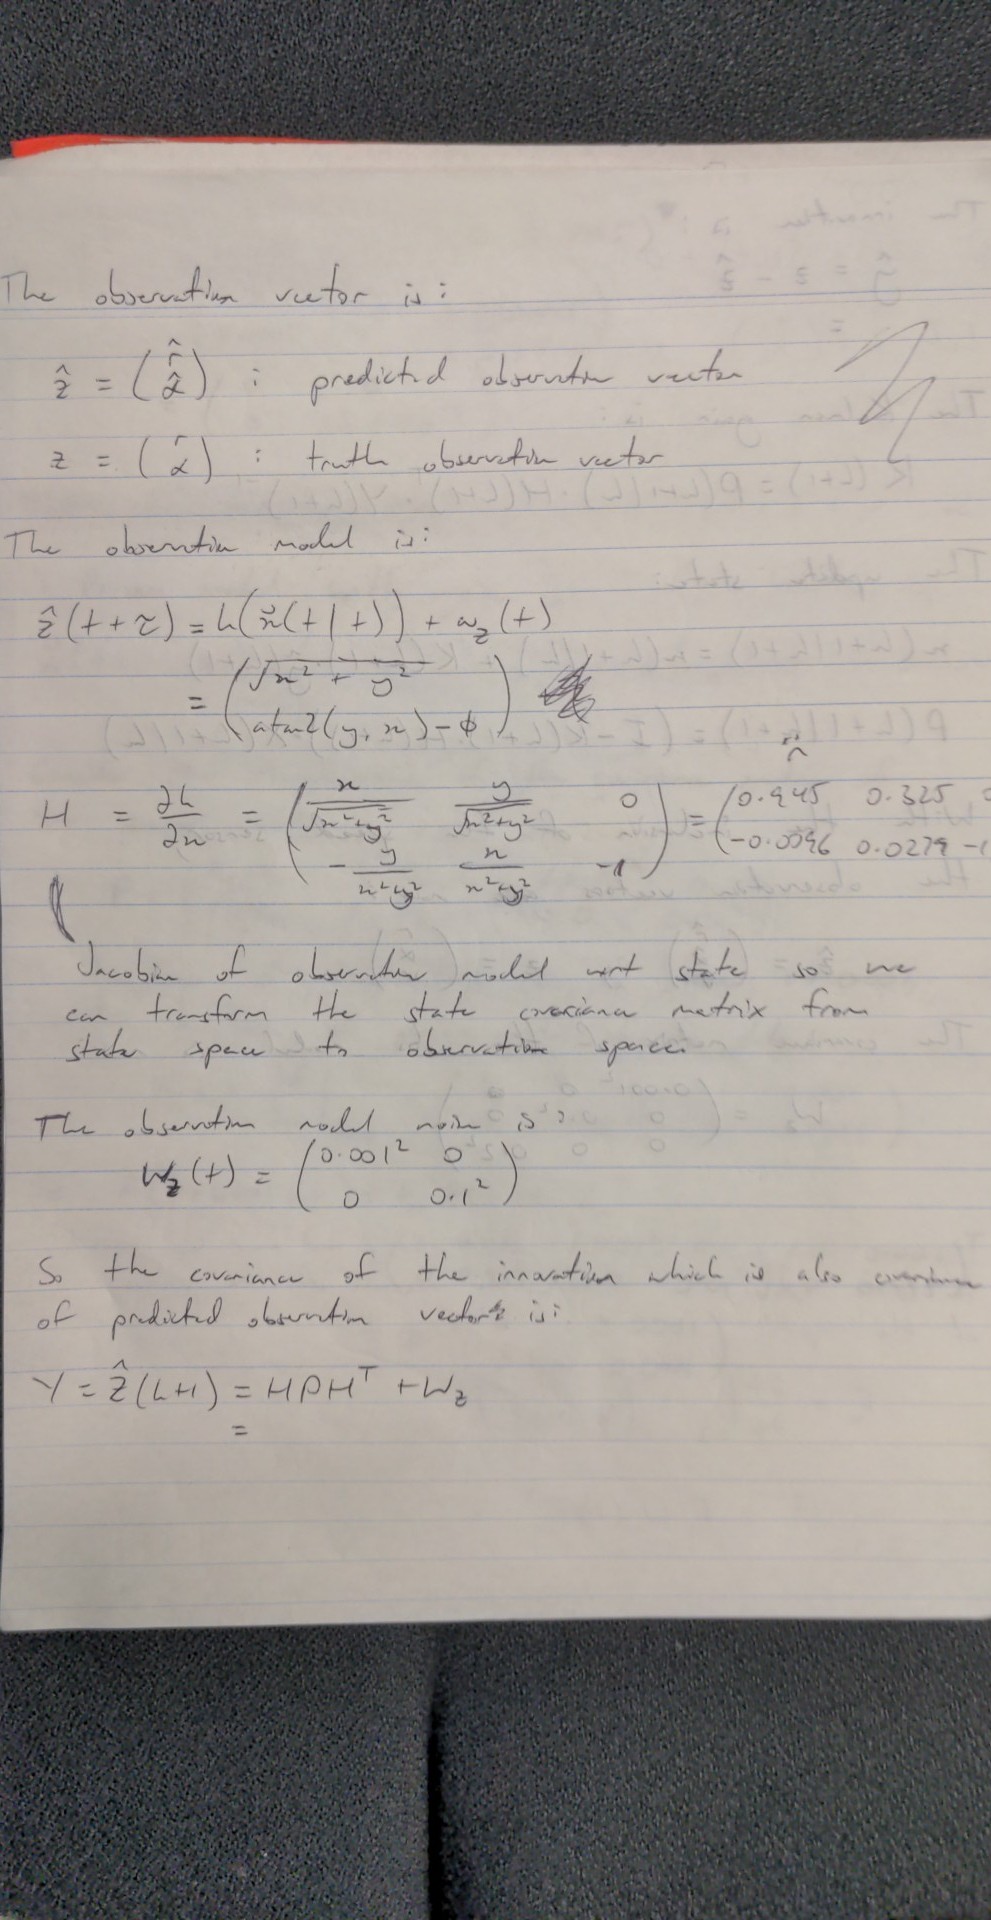 The observation vector is:
ẑ = (r̂ α̂) : predicted observation vector
z = (r α) : truth observation vector
The observation model is:
ẑ(t+τ) = h(x̂(t|t)) + w_z(t)
= (√x²+y²
atan2(y,x)-φ)
H = ∂h/∂x = (x/√x²+y² y/√x²+y² 0 = (0.945 0.325
-y/x²+y² x/x²+y² -1) -0.0096 0.0279 -1
Jacobian of observation model wrt state so we
can transform the state covariance matrix from
state space to observation space.
The observation model noise is:
W_z(t) = (0.001² 0
0 0.1²)
So the covariance of the innovation which is also covariance
of predicted observation vector is:
Y = Ẑ(k+1) = HPHᵀ + W_z
=